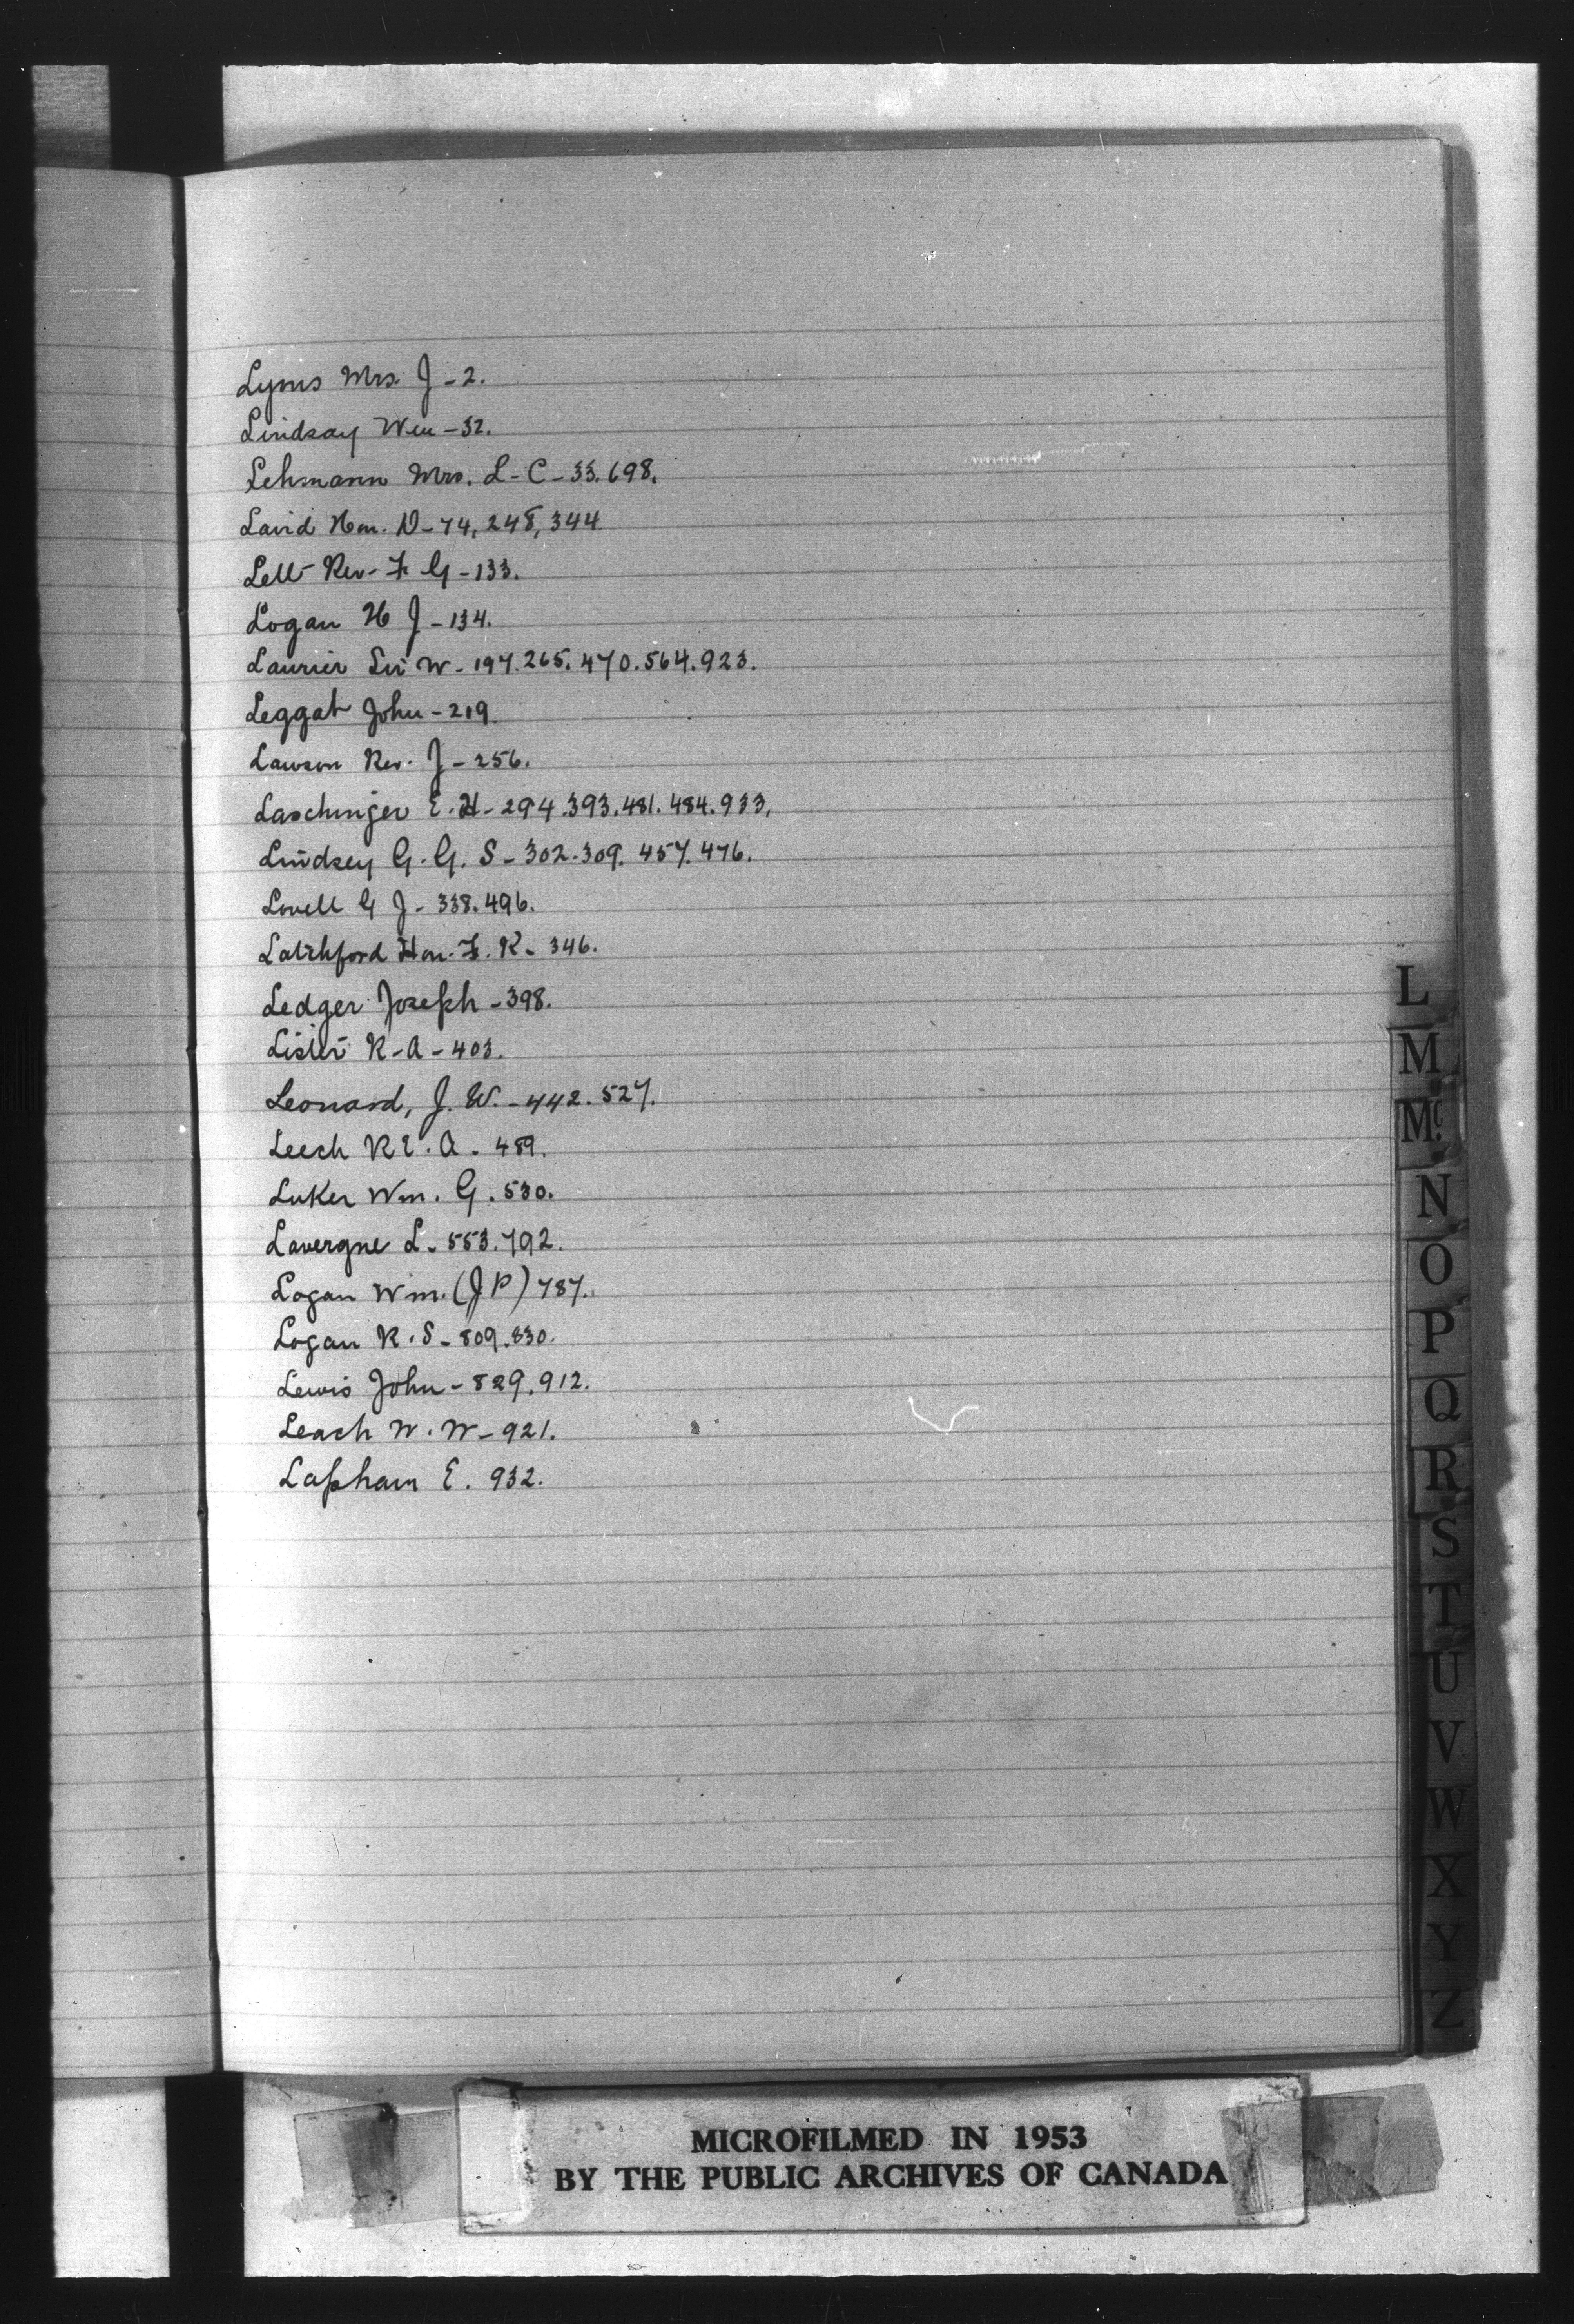 Lyons Mrs. J - 2.
Lindsay Wm - 32.
Lehmann Mrs. L - C - 33. 698.
Lavid Hon. D - 74, 248, 344
Lett Rev - F G - 133.
Logan H J - 134.
Laurier Sir W - 197. 265. 470. 564. 923.
Leggat John - 219.
Lawson Rev. J - 256.
Laschinger E. H - 294. 393. 481. 484. 933.
Lindsey G. G. S - 302. 309. 457. 476.
Lovell G J - 338. 496.
Latchford Hon. F. R - 346.
Ledger Joseph - 398.
Lister R - A - 403.
Leonard, J. W. - 442. 527.
Leech R E. A - 489.
Luker Wm. G. 530.
Lavergne L - 553. 792.
Logan Wm. (J P) 787.
Logan R. S - 809. 830.
Lewis John - 829. 912.
Leach W. W - 921.
Lapham E. 932.
L
M
Mc.
N
O
P
Q
R
S
T
U
V
W
X
Y
Z
MICROFILMED IN 1953
BY THE PUBLIC ARCHIVES OF CANADA